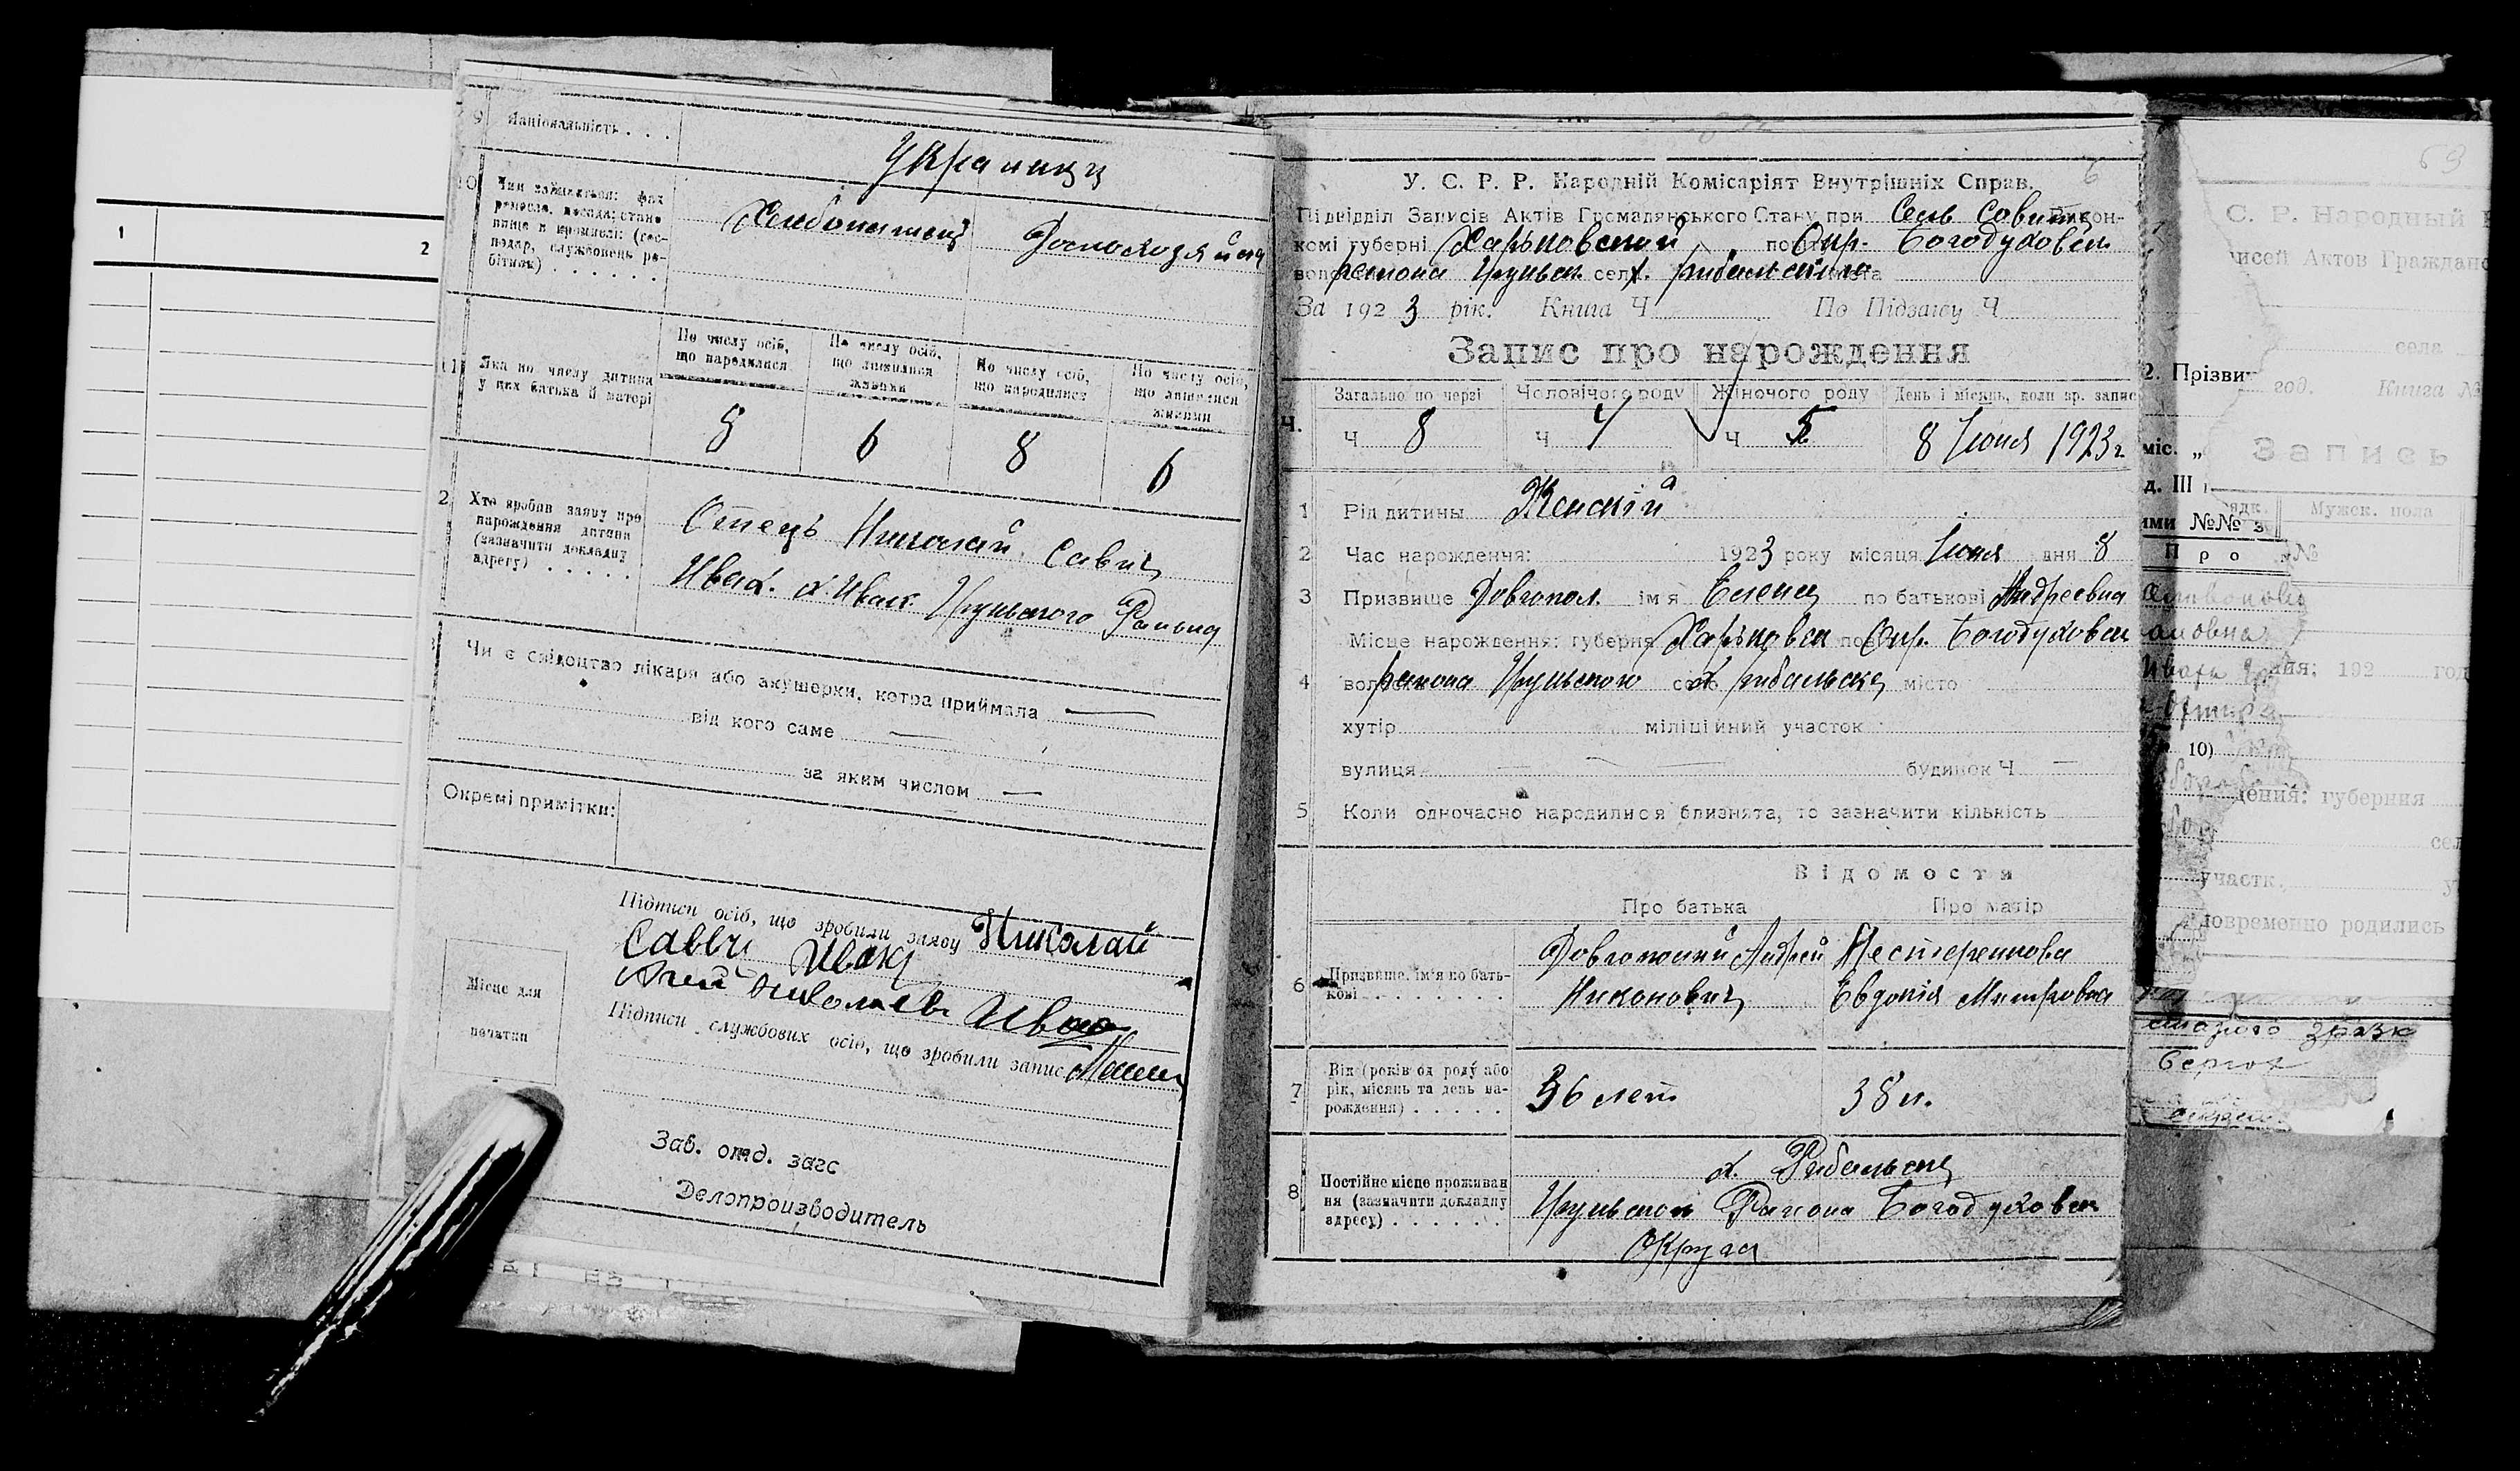 1
2
9 Національність . . .
Украинци
10 Чим займається: фах
ремесло, посада; стано
вище в промислі: (гос-
подар, службовець ро-
бітник) . . . . . .
Хлебопашец Домохозяйка
11 Яка по числу дитина
у цих батька й матері
По числу осіб,
що народилися
По числу осіб,
що лишилися
живими
По числу осіб,
що народилися
По числу осіб,
що лишилися
живими
8 6 8 6
2 Хто зробив заяву про
нарождення дитини
(зазначити докладну
адресу) . . . . .
Отець Николай Савич
Ивах. х. Ивах. Района
Чи є свідоцтво лікаря або акушерки, котра приймала —
від кого саме —
за яким числом —
Окремі примітки:
Підписи осіб, що зробили заяву Николай
Саввич
Підписи службових осіб, що зробили запис
Місце для
печатки
Зав. отд. загс
Делопроизводитель
6
У. С. Р. Р. Народній Комісаріят Внутрішніх Справ.
Підвідділ Записів Актів Громадянського Стану при Сель Совит Викон-
комі губерні Харьковской, повіт Окр. Богодуховск
района сел х. міста
За 1923 рік. Книга Ч По Підзагсу Ч
Запис про нарождення
Ч.
Загально по черзі
Чоловічого роду
Жіночого роду
День і місяць, коли зр. запис
Ч 8 Ч 4 Ч 5 8 Июня 1923 г
1 Рід дитины Женскій
2 Час нарождення: 1923 року місяця Июня дня 8
3 Призвище Довгопол. ім'я Елена по батькові Андреевна
Місце нарождення: губерня Харьковск повіт Окр. Богодуховск
4 района село х місто
хутір міліційний участок
вулиця — будинок Ч —
5 Коли одночасно народилися близнята, то зазначити кількість
Відомости
Про батька Про матір
6 Призвище, ім'я по бать-
кові . . . . . . . .
Довгополий Андрей
Никонович
Нестеренкова
Евдокія Митровна
7 Вік (років од роду або
рік, місяць та день на-
рождення) . . . . .
36 лет 38 л.
8 Постійне місце проживан
ня (зазначити докладну
адресу) . . . . . .
Района Богодуховск
Округа
69
С. Р. Народный
исей Актов Гражданс
села
2. Прізви
год. Книга №
міс. „
Запись
д. III
ядк. Мужск. пола
ими №№ з
Про №
ния; 192 год
10)
дения: губерния
сел
участк.
новременно родились